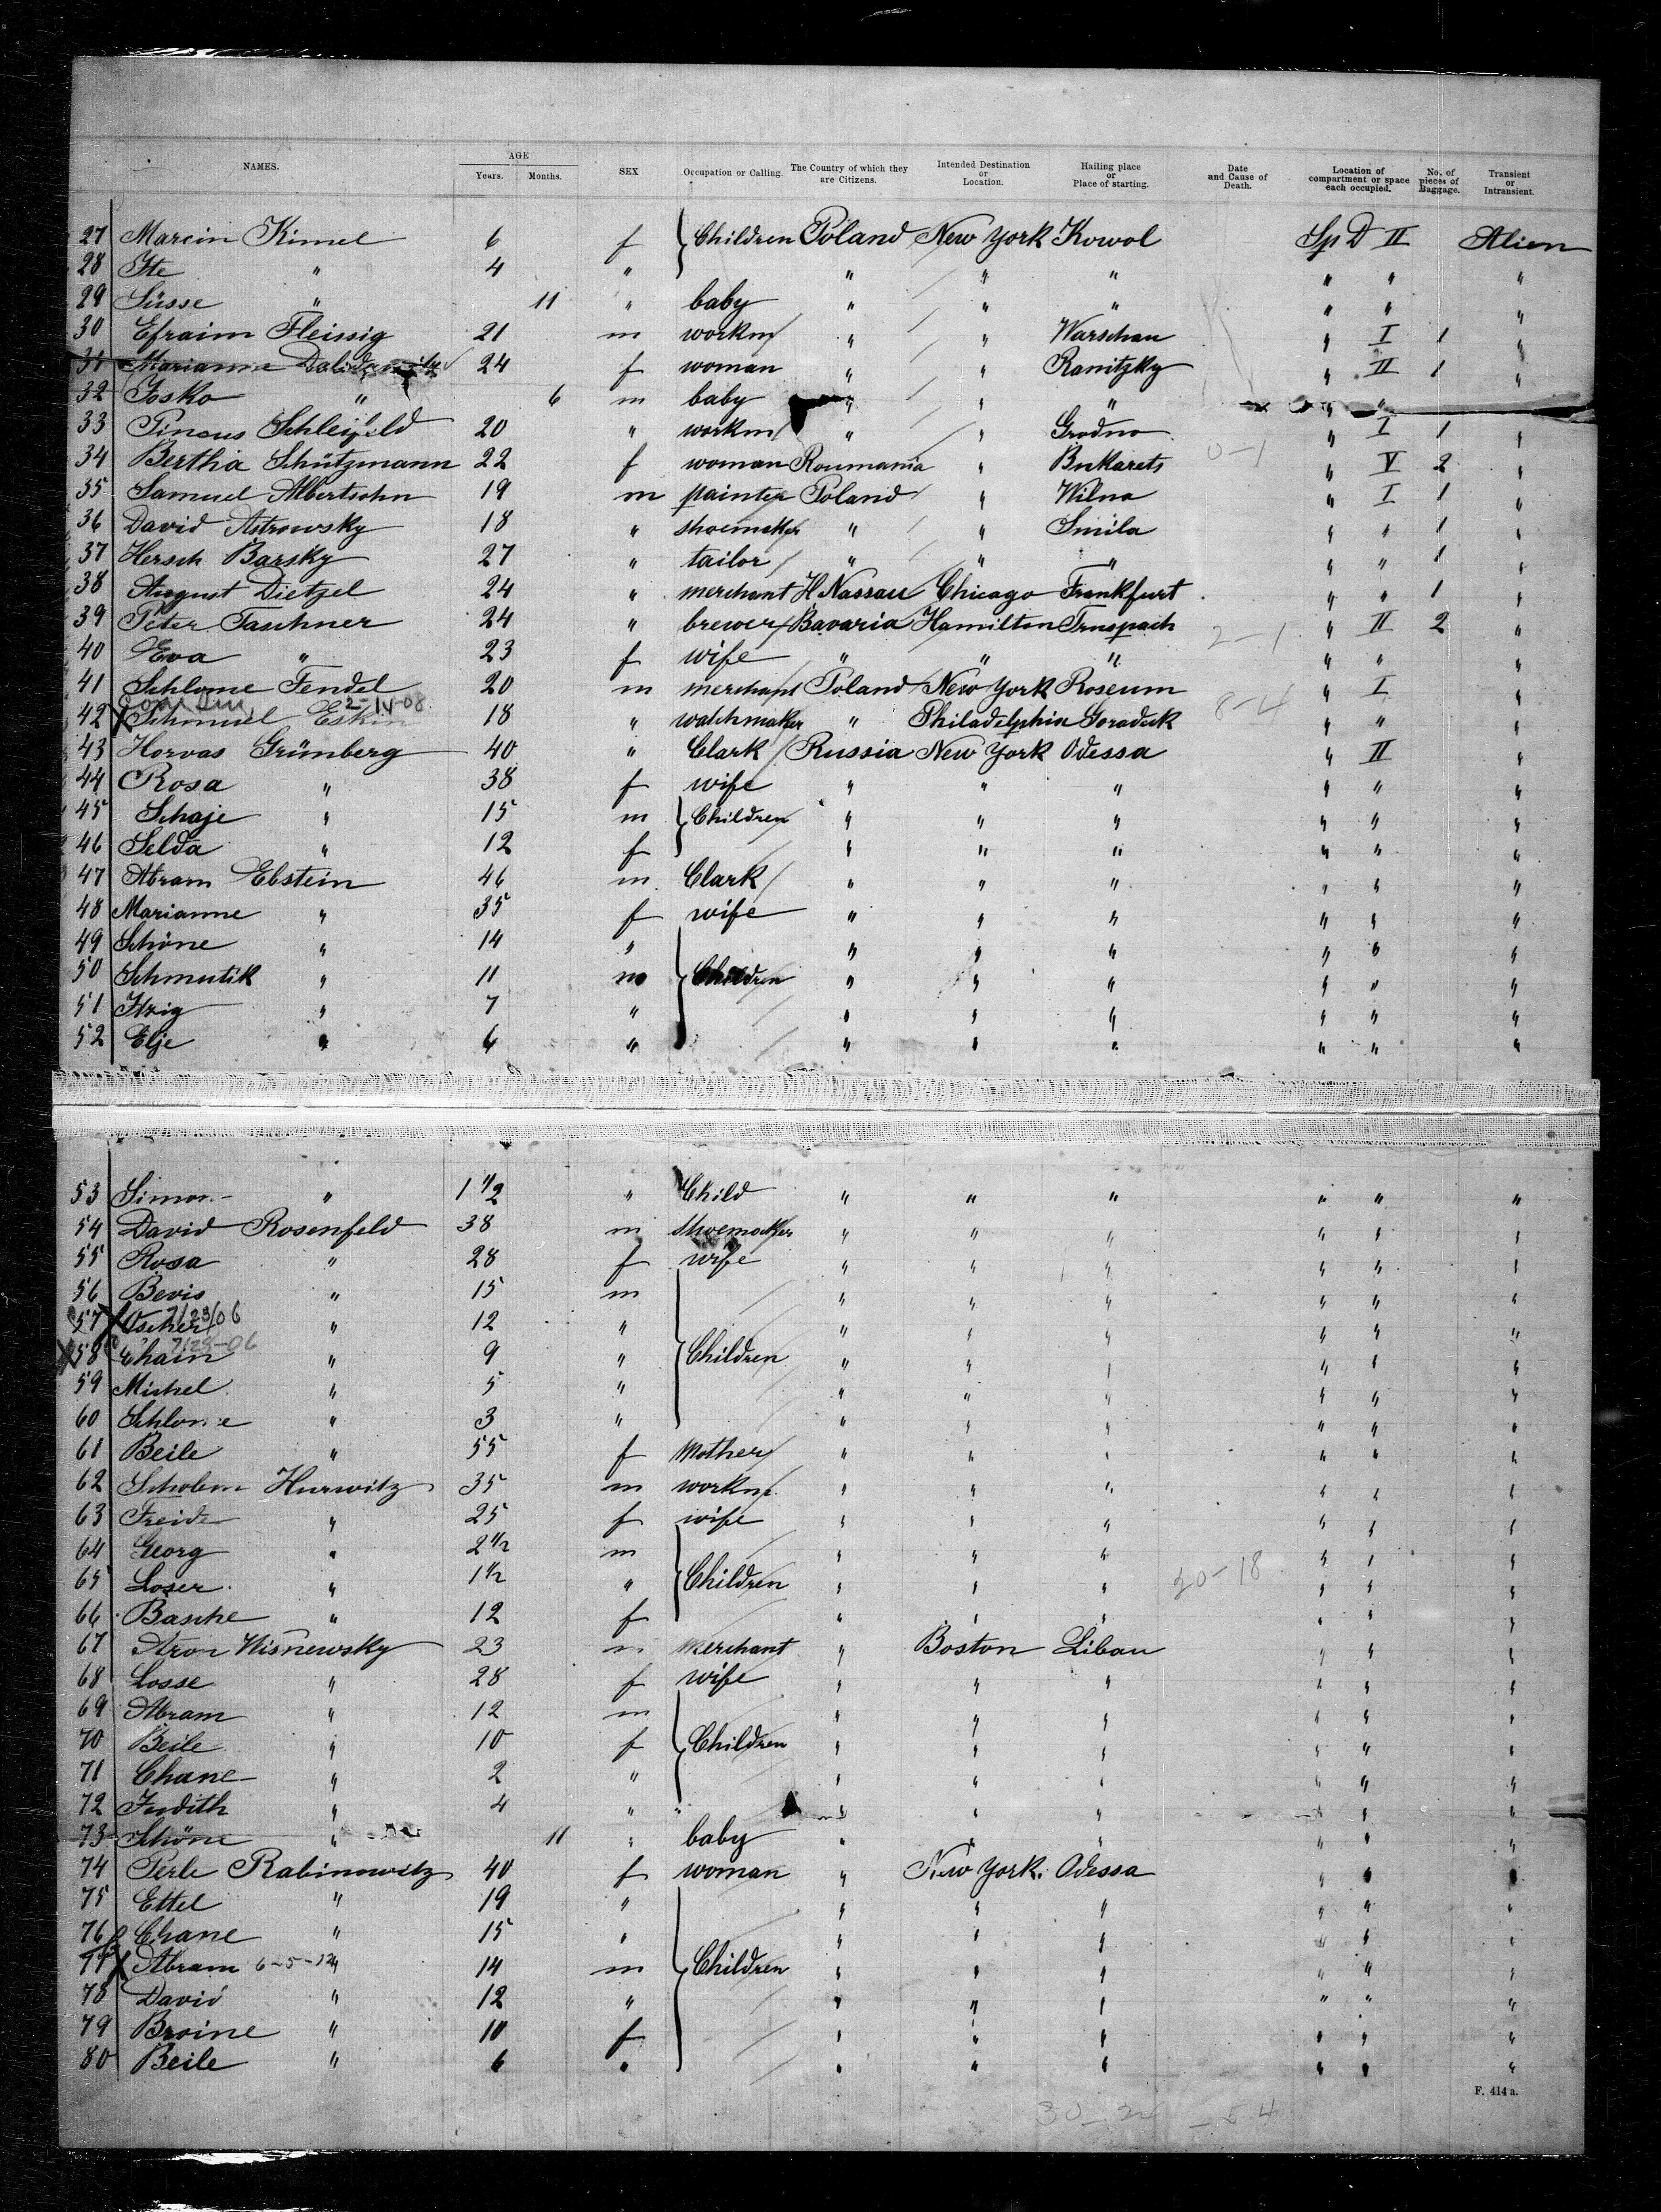 NAMES. AGE Years. Months. SEX Occupation or Calling. The Country of which they are Citizens. Intended Destination or Location. Hailing place or Place of starting. Date and Cause of Death. Location of compartment or space each occupied. No. of pieces of Baggage. Transient or Intransient.
27 Marcin Kimel 6 f Children Poland New York Kowol Sp D II Alien
28 Ite " 4 " " " " " " "
29 Süsse " 11 " baby " " " " " "
30 Efraim Fleissig 21 m workm " " Warschau " I 1 "
31 Marianne 24 f woman " " Ranitzky " II 1 "
32 Josko " 6 m baby " " " " " "
33 Pincus Schleifeld 20 " workm " " Grodno " I 1 "
34 Bertha Schützmann 22 f woman Roumania " Bukarets 0-1 " V 2 "
35 Samuel Albertsohn 19 m painter Poland " Wilna " I 1 "
36 David Astrowsky 18 " shoemaker " " Smila " " 1 "
37 Hersch Barsky 27 " tailor " " " " " 1 "
38 August Dietzel 24 " merchant H Nassau Chicago Frankfurt " " 1 "
39 Peter Taschner 24 " brewer Bavaria Hamilton Truspach 2-1 " II 2 "
40 Eva " 23 f wife " " " " " "
41 Schlome Fendel 20 m merchant Poland New York Roseum " I "
2-14-08
42 X Schmuel Eskin 18 " watchmaker " Philadelphia Goraduk 8-4 " " "
43 Horvas Grünberg 40 " Clark Russia New York Odessa " II "
44 Rosa " 38 f wife " " " " " "
45 Schaje " 15 m Children " " " " " "
46 Selda " 12 f " " " " " "
47 Abram Ebstein 46 m Clark " " " " " "
48 Marianne " 35 f wife " " " " " "
49 Schöne " 14 " " " " " " "
50 Schmutik " 11 m Children " " " " " "
51 Itzig " 7 " " " " " " "
52 Elje " 6 " " " " " " "
53 Simon " 1 1/2 " Child " " " " " "
54 David Rosenfeld 38 m shoemaker " " " " " "
55 Rosa " 28 f wife " " " " " "
56 Bevis " 15 m " " " " " "
7/23/06
57 X Oscher " 12 " " " " " " "
7/23-06
X 58 Chain " 9 " Children " " " " " "
59 Michel " 5 " " " " " " "
60 Schlome " 3 " " " " " " "
61 Beile " 55 f Mother " " " " " "
62 Scholem Hurwitz 35 m workm " " " " " "
63 Freide " 25 f wife " " " " " "
64 Georg " 2 1/2 m " " " " " "
65 Loser " 1 1/2 " Children " " " 20-18 " " "
66 Basche " 12 f " " " " " "
67 Aron Wisnewsky 23 m Merchant " Boston Libau " " "
68 Losse " 28 f wife " " " " " "
69 Abram " 12 m " " " " " "
70 Beile " 10 f Children " " " " " "
71 Chane " 2 " " " " " " "
72 Judith " 4 " " " " " " " "
73 Schöne " 11 " baby " " " " " "
74 Perle Rabinowitz 40 f woman " New York. Odessa " " "
75 Ettel " 19 " " " " " " "
76 Chane " 15 " " " " " " "
77 X Abram 6-5-12 " 14 m Children " " " " " "
78 David " 12 " " " " " " "
79 Broine " 10 f " " " " " "
80 Beile " 6 " " " " " " "
F. 414 a.